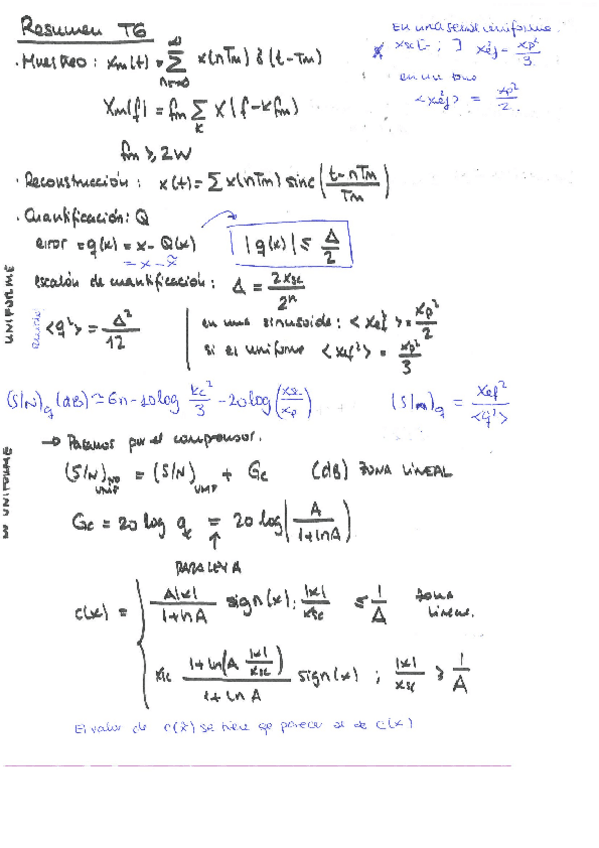 Resumen T6
En una señal uniforme
xsc[- ; ] x²ef = xp²/3
en un tono
<x²ef> = xp²/2
· Muestreo: xm(t) = Σ x(nTm) δ(t-Tm)
Xm(f) = fm Σ X(f-kfm)
k
fm ≥ 2W
· Reconstrucción: x(t) = Σ x(nTm) sinc((t-nTm)/Tm)
· Cuantificación: Q
error = q(x) = x - Q(x) |q(x)| ≤ Δ/2
= x - x̃
escalón de cuantificación: Δ = 2xsc/2ⁿ
UNIFORME
<q²> = Δ²/12
en una sinusoide: <xef²> = xp²/2
si es uniforme <xef²> = xp²/3
(S/N)q (dB) ≃ 6n - 10log kc²/3 - 20log(xsc/xp) (S/N)q = xef²/<q²>
→ Pasamos por el compresor.
NO UNIFORME
(S/N)NO UNIF = (S/N)UNIF + Gc (dB) ZONA LINEAL
Gc = 20 log qc = 20 log(A/(1+lnA))
↑
PARA LEY A
c(x) = { A|x|/(1+lnA) sign(x); |x|/xsc ≤ 1/A zona lineal.
xsc (1+ln(A |x|/xsc))/(1+LnA) sign(x) ; |x|/xsc ≥ 1/A
El valor de c(x̃) se tiene qe parecer al de c(x)